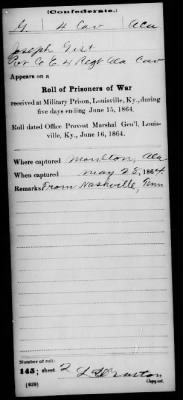 (Confederate.)
G 4 Cav Ala
Joseph Gist
Pvt Co E, 4 Regt Ala Cav
Appears on a
Roll of Prisoners of War
received at Military Prison, Louisville, Ky., during
five days ending June 15, 1864.
Roll dated Office Provost Marshal Gen'l, Louis-
ville, Ky., June 16, 1864.
Where captured Moulton, Ala
When captured May 28, 1864
Remarks: From Nashville, Tenn
Number of roll:
145; sheet 2
(639) Copyist.